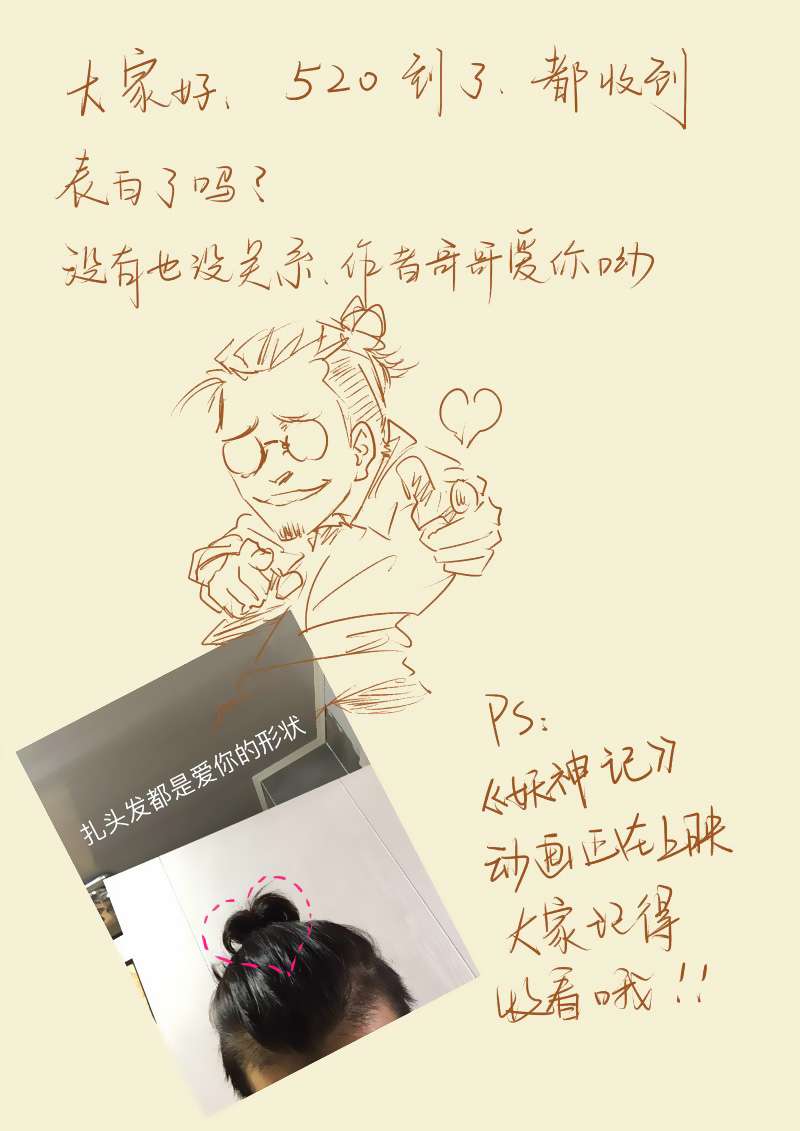 大家好、520到了、都收到
表白了吗？
没有也没关系、作者哥哥爱你呦
扎头发都是爱你的形状
PS：
《妖神记》
动画正在上映
大家记得
收看哦！！